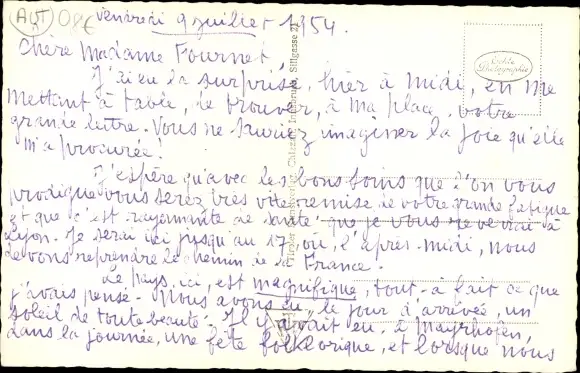 AUT 08€
Vendredi 9 juillet 1954.
Chère Madame Fournet,
J'ai eu la surprise, hier à midi, en me
mettant à table, de trouver, à ma place, votre
grande lettre. Vous ne sauriez imaginer la joie qu'elle
m'a procurée!
J'espère qu'avec les bons soins que l'on vous
prodigue vous serez très vite remise de votre grande fatigue
et que c'est rayonnante de santé que je vous reverrai à
Lyon. Je serai ici jusqu'au 17, où, l'après-midi, nous
devons reprendre le chemin de la France.
Le pays, ici, est magnifique, tout-à fait ce que
j'avais pensé. Nous avons eu, le jour d'arrivée, un
soleil de toute beauté. Il y avait eu, à Mayrhofen,
dans la journée, une fête folklorique, et lorsque nous
Echte
Photographie
Innsbruck, Sillgasse 21